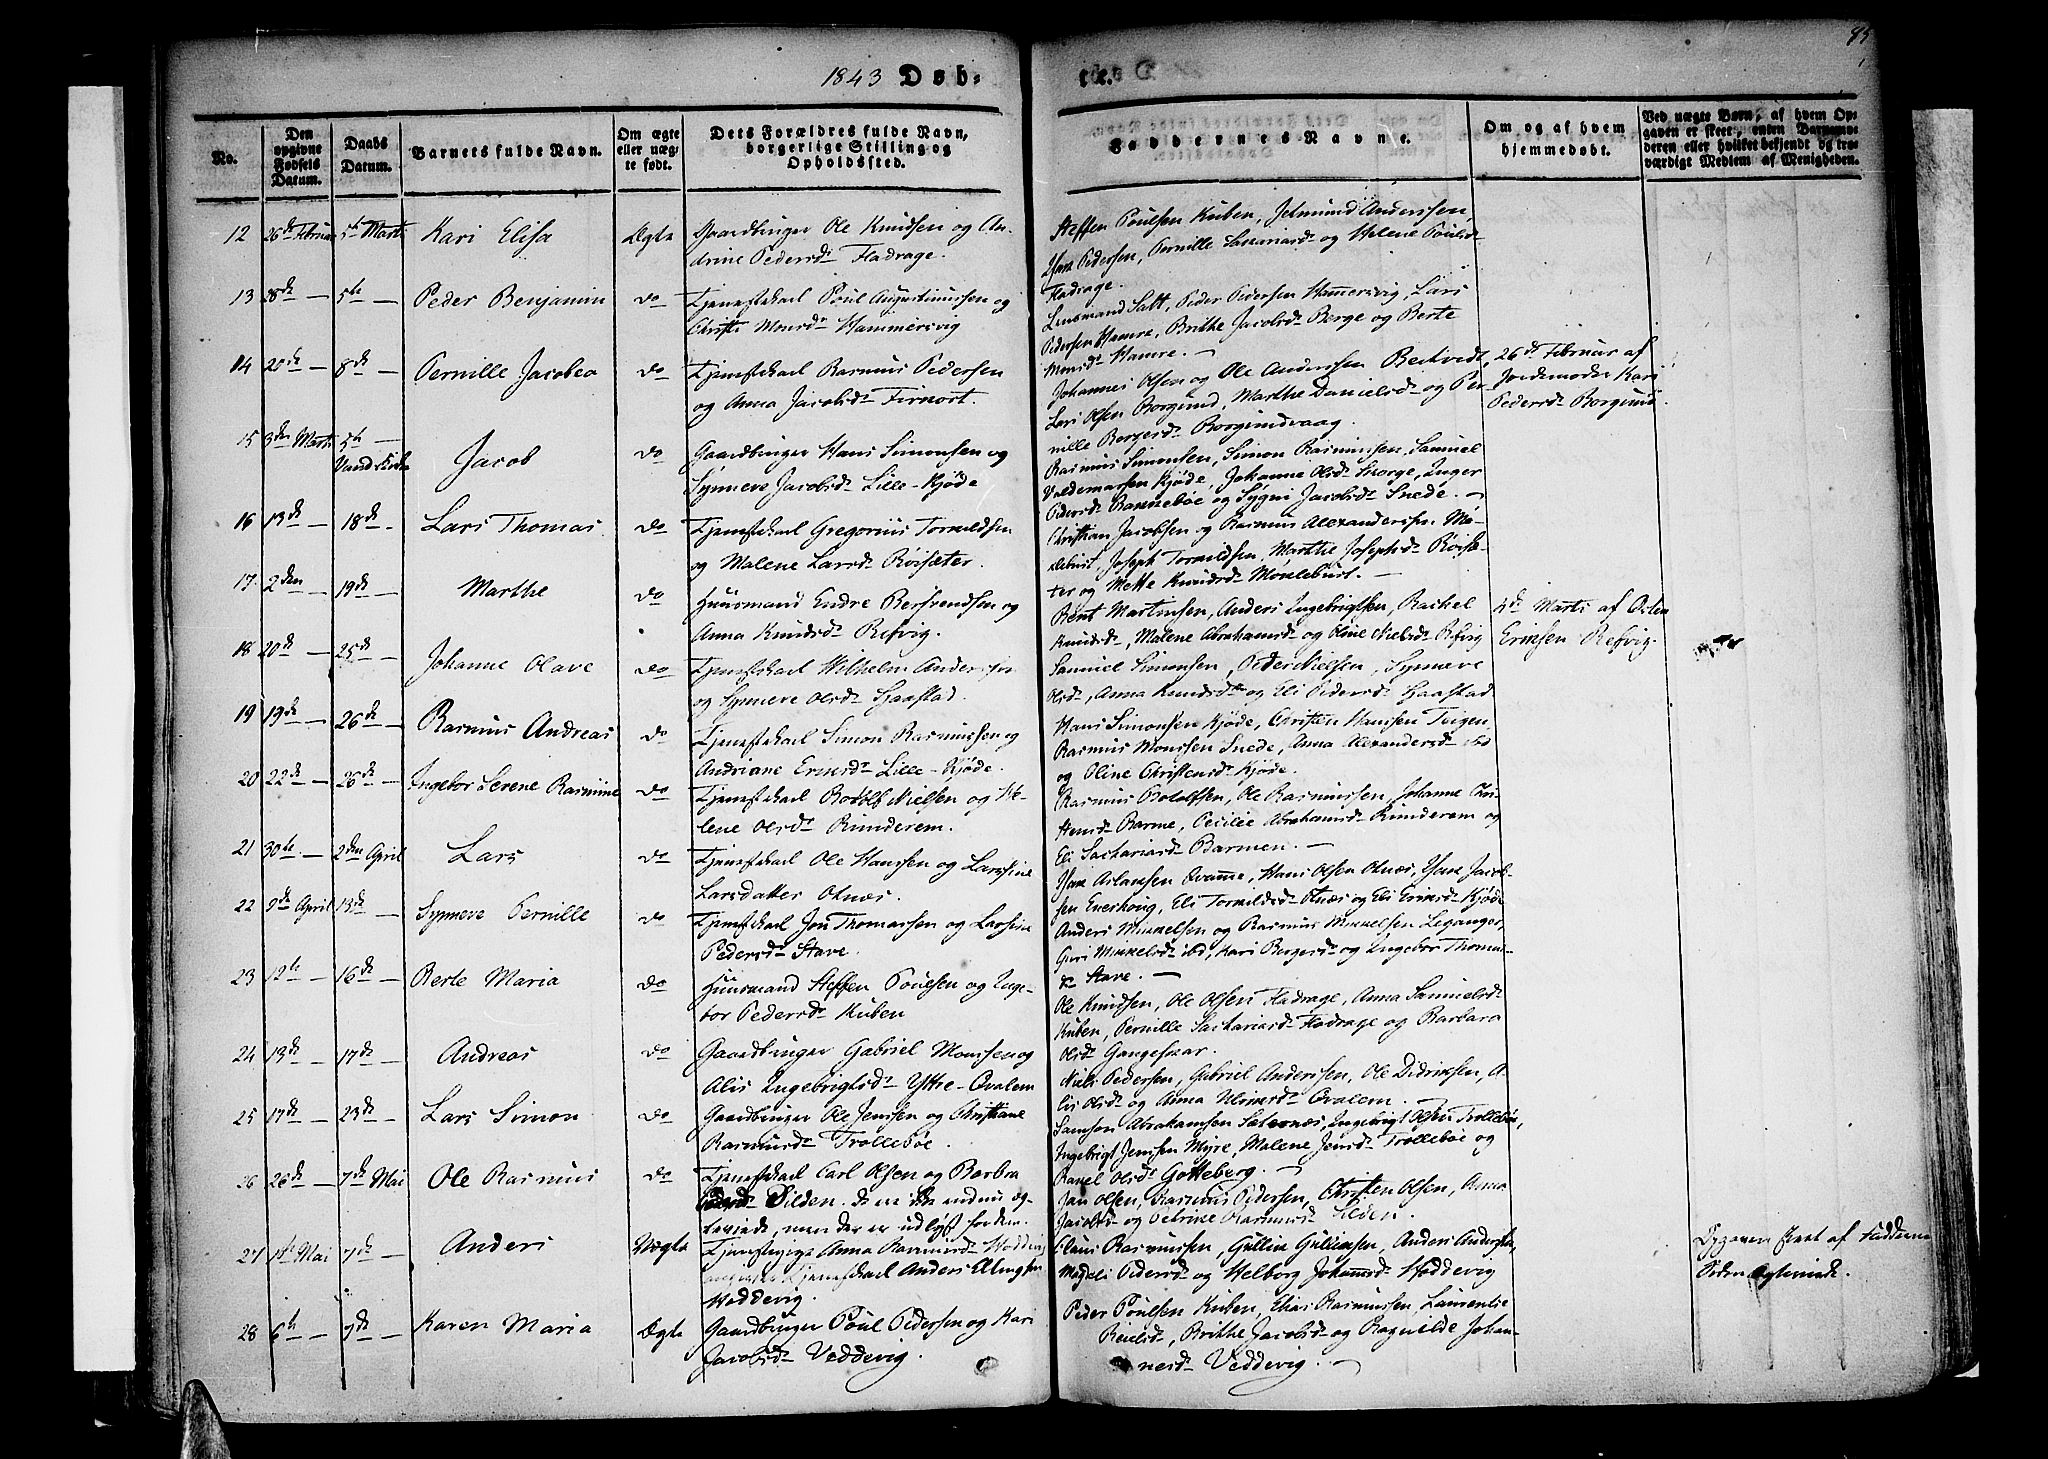 1843 Døb- te.
95
No.
Den opgivne Fødsels Datum.
Daabs Datum.
Barnets fulde Navn.
Om ægte eller uægte født.
Dets Forældres fulde Navn, borgerlige Stilling og Opholdssted.
Faddernes Navne.
Om og af hvem hjemmedøbt.
Ved uægte Børn, af hvem Opgaven er skeet, enten Barnemoderen eller hvilket bekjendt og troværdigt Medlem af Menigheden.
12 26de Februar 5te Marts Kari Elisa Ægte
Gaardbruger Ole Knudsen og An-
drine Pedersdr Fladrage.
Steffen Poulsen Kuben, Jetmund Anderssen,
Isak Pedersen, Pernille Sakariasdr og Helene Poulsdr
Fladrage.
13 28de — 5te — Peder Benjamin do
Tjenestekarl Poul Augustinussen og
Christi Monsdr Hammersvig
Lensmand Salt, Peder Pedersen Hammersvig, Lars
Pedersen Hamre, Brithe Jacobsdr Berge og Berte
Monsdr Hamre. —
14 20de — 8de Pernille Jacobea do
Tjenestekarl Rasmus Pedersen
og Anna Jacobsdr Firnort.
Johannes Olsen og Ole Andersen Beitvedt,
Lars Olsen Borgund, Marthe Danielsdr og Per-
nille Bergersdr Borgundvaag.
26de Februar af
Jordemoder Kari
Pedersdr Borgund.
15 3den Marts 5te —
Jacob do
Gaardbruger Hans Simonsen og
Synneve Jacobsdr Lille-Kjøde
Rasmus Simonsen, Simon Rasmussen, Samuel
Valdemarsen Kjøde, Johanne Olsdr Skorge, Inger
Pedersdr Rannebøe og Sygni Jacobsdr Snede. —
16 13de — 18de — Lars Thomas do
Tjenestekarl Gregorius Tormildsen
og Malene Larsdr Røisæter.
Christian Jacobsen og Rasmus Alexandersen Mo-
klebust, Joseph Tormildsen, Marthe Josephsdr Røisæ-
ter og Mette Knudsdr Moklebust. —
17 2den — 19de — Marthe do
Huusmand Endre Bersvendsen og
Anna Knudsdr Refvig.
Bent Martinsen, Anders Ingebrigtsen, Rachel
Knudsdr, Malene Abrahamsdr og Oline Nielsdr Refvig
4de Marts af Osten
Eriksen Refvig.
18 20de — 25de Johanne Olave do
Tjenestekarl Wilhelm Andersen
og Synneve Olsdr Sjaastad.
Samuel Simonsen, Peder Nielsen, Synneve
Olsdr, Anna Knudsdr og Eli Pedersdr Sjaastad
19 19de — 26de — Rasmus Andreas do
Tjenestekarl Simon Rasmussen og
Andriane Eriksdr Lille-Kjøde.
Hans Simonsen Kjøde, Christen Hansen Tvigen,
Rasmus Monssen Snede, Anna Alexandersdr ibd
og Oline Christensdr Kjøde.
20 22de — 26de — Ingebor Serene Rasmine do
Tjenestekarl Rodolf Nielsen og He-
lene Olsdr Runderem.
Rasmus Botolfsen, Ole Rasmussen, Johanne Chri-
stensdr Barme, Cecilie Abrahamsdr Runderem og
Eli Sachariasdr Barmen. —
21 30te — 2den April Lars do
Tjenestekarl Ole Hanssen og Larssine
Larsdatter Otnæs.
Isak Aslaksen Qvamme, Hans Olsen Otnæs, Isak Jacob-
sen Enerhoug, Eli Tormildsdr Otnæs og Eli Eriksdr Kjøde
22 9de April 13de — Synneve Pernille do
Tjenestekarl Jon Thomassen og Larsine
Pedersdr Stave.
Anders Mikkelsen og Rasmus Mikkelsen Leganger,
Guri Mikkelsdr ibd, Kari Bergersdr og Ingebor Thomas-
dr Stave. —
23 12te — 16de — Berte Maria do
Huusmand Steffen Poulsen og Inge-
bor Pedersdr Kuben
Ole Knudsen, Ole Olsen Fladrage, Anna Samuelsdr
Kuben, Pernille Sachariasdr Fladrage og Barbara
Olsdr Gangeskar.
24 13de — 17de — Andreas do
Gaardbruger Gabriel Monssen og
Alis Ingebrigtsdr Yttre-Qvalem
Niels Pedersen, Gabriel Anderssen, Ole Didriksen, A-
lis Olsdr og Anna Nilsdr Qvalem. —
25 17de — 23de — Lars Simon do
Gaardbruger Ole Jenssen og Christiane
Rasmusdr Trollebøe.
Samson Abrahamsen Saternæs, Ingebrigt Olsen Trollebøe,
Ingebrigt Jenssen Myre, Malene Jensdr Trollebøe og
Rakel Olsdr Gotteberg. —
26 26de — 7de Mai Ole Rasmus do
Tjenestekarl Carl Olsen og Barbra
Pedersdr Silden. De ere ikke endnu æg-
teviede, men der er udlyst for dem.
Jan Olsen, Rasmus Pedersen, Christen Olsen, Anna
Jacobsdr og Petrine Rasmusdr Silden.
27 1ste Mai 7de — Anders Uægte
Tjenestepige Anna Rasmusdr Hoddevig
angivet Tjenestekarl Anders Ellingsen
Hoddevig.
Claus Rasmussen, Gullik Gulliksen, Anders Andersen,
Mageli Pedersdr og Helborg Johannsdr Hoddevig
Opgaven skeet af Fadderne
28 6te — 7de — Karen Maria Ægte
Gaardbruger Poul Pedersen og Kari
Jacobsdr Veddevig.
Peder Poulsen Kuben, Elias Rasmussen, Laurentse
Reielsdr, Brithe Jacobsdr og Ragnilde Johan-
nesdr Veddevig. —